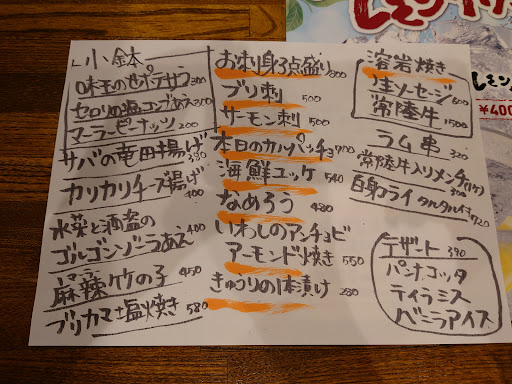 小鉢
味玉のせポテサラ 300
セロリの塩コンブあえ 300
マーラーピーナッツ 200
サバの竜田揚げ 390
カリカリチーズ揚げ 400
水菜と酒盗の
ゴルゴンゾーラあえ 400
麻辣竹の子 450
ブリカマ塩焼き 580
お刺身3点盛り 800
ブリ刺 500
サーモン刺 500
本日のカルパッチョ 700
海鮮ユッケ 540
なめろう 480
いわしのアンチョビ
アーモンド焼き 550
きゅうりの1本漬け 280
溶岩焼き
生ソーセージ 600
常陸牛 1500
ラム串 320
常陸牛入りメンチ(1ケ) 300
白身フライ タルタル付 420
デザート 390
パンナコッタ
ティラミス
バニラアイス
レモン
¥400